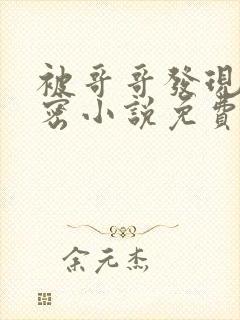 被哥哥發現
密小說免費
余元杰